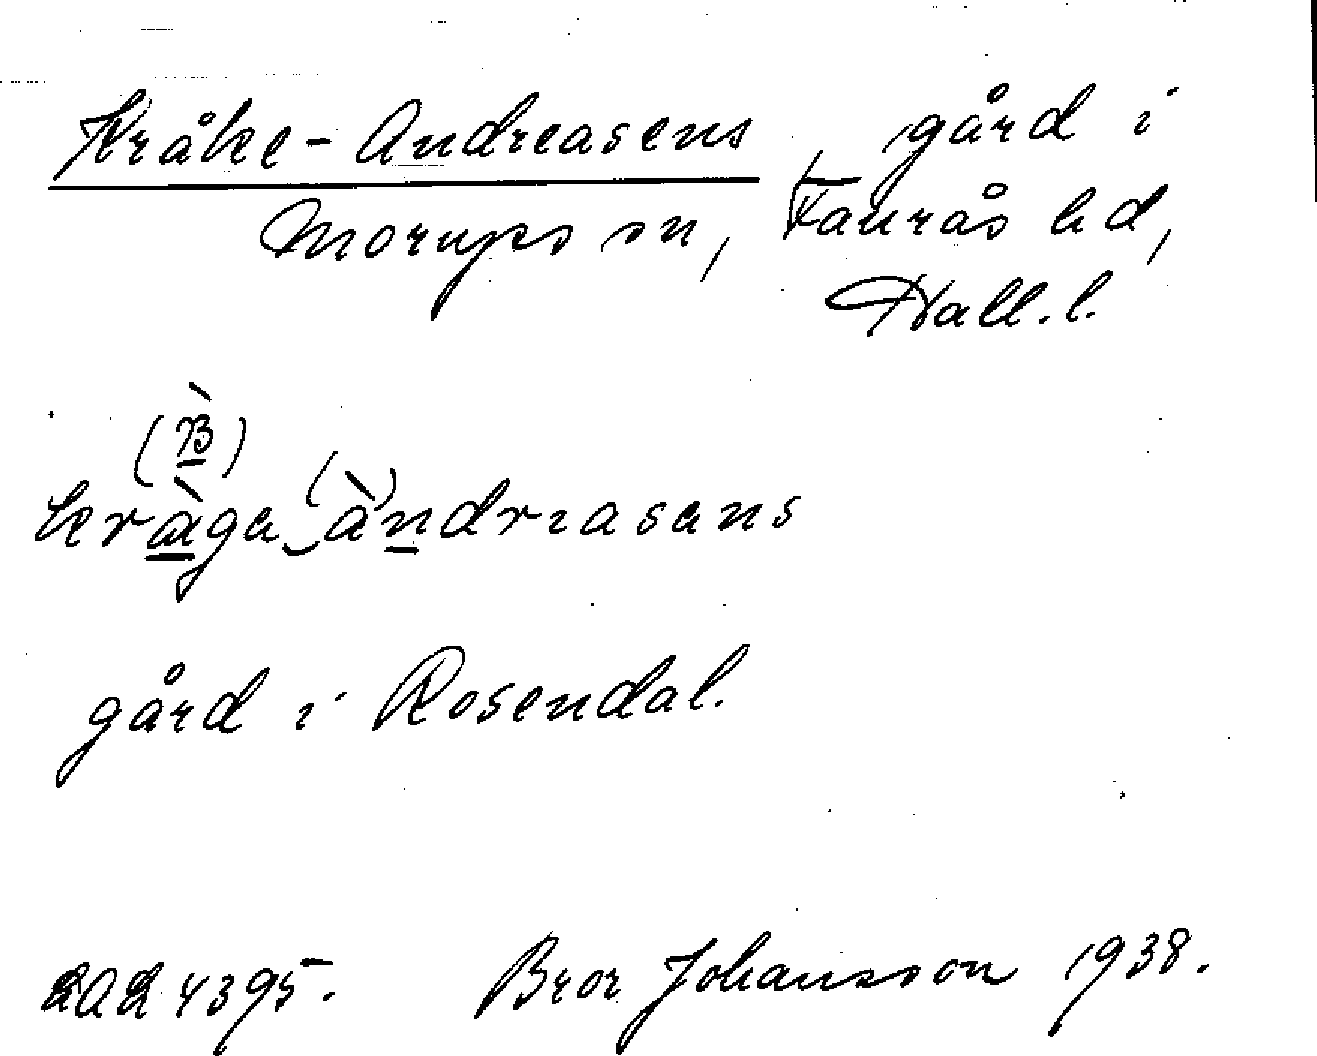 Kråke-Andreasens, gård i
Morups sn, Faurås hd,
Hall. l.
gård i Rosendal.
4395. Bror Johansson 1938.